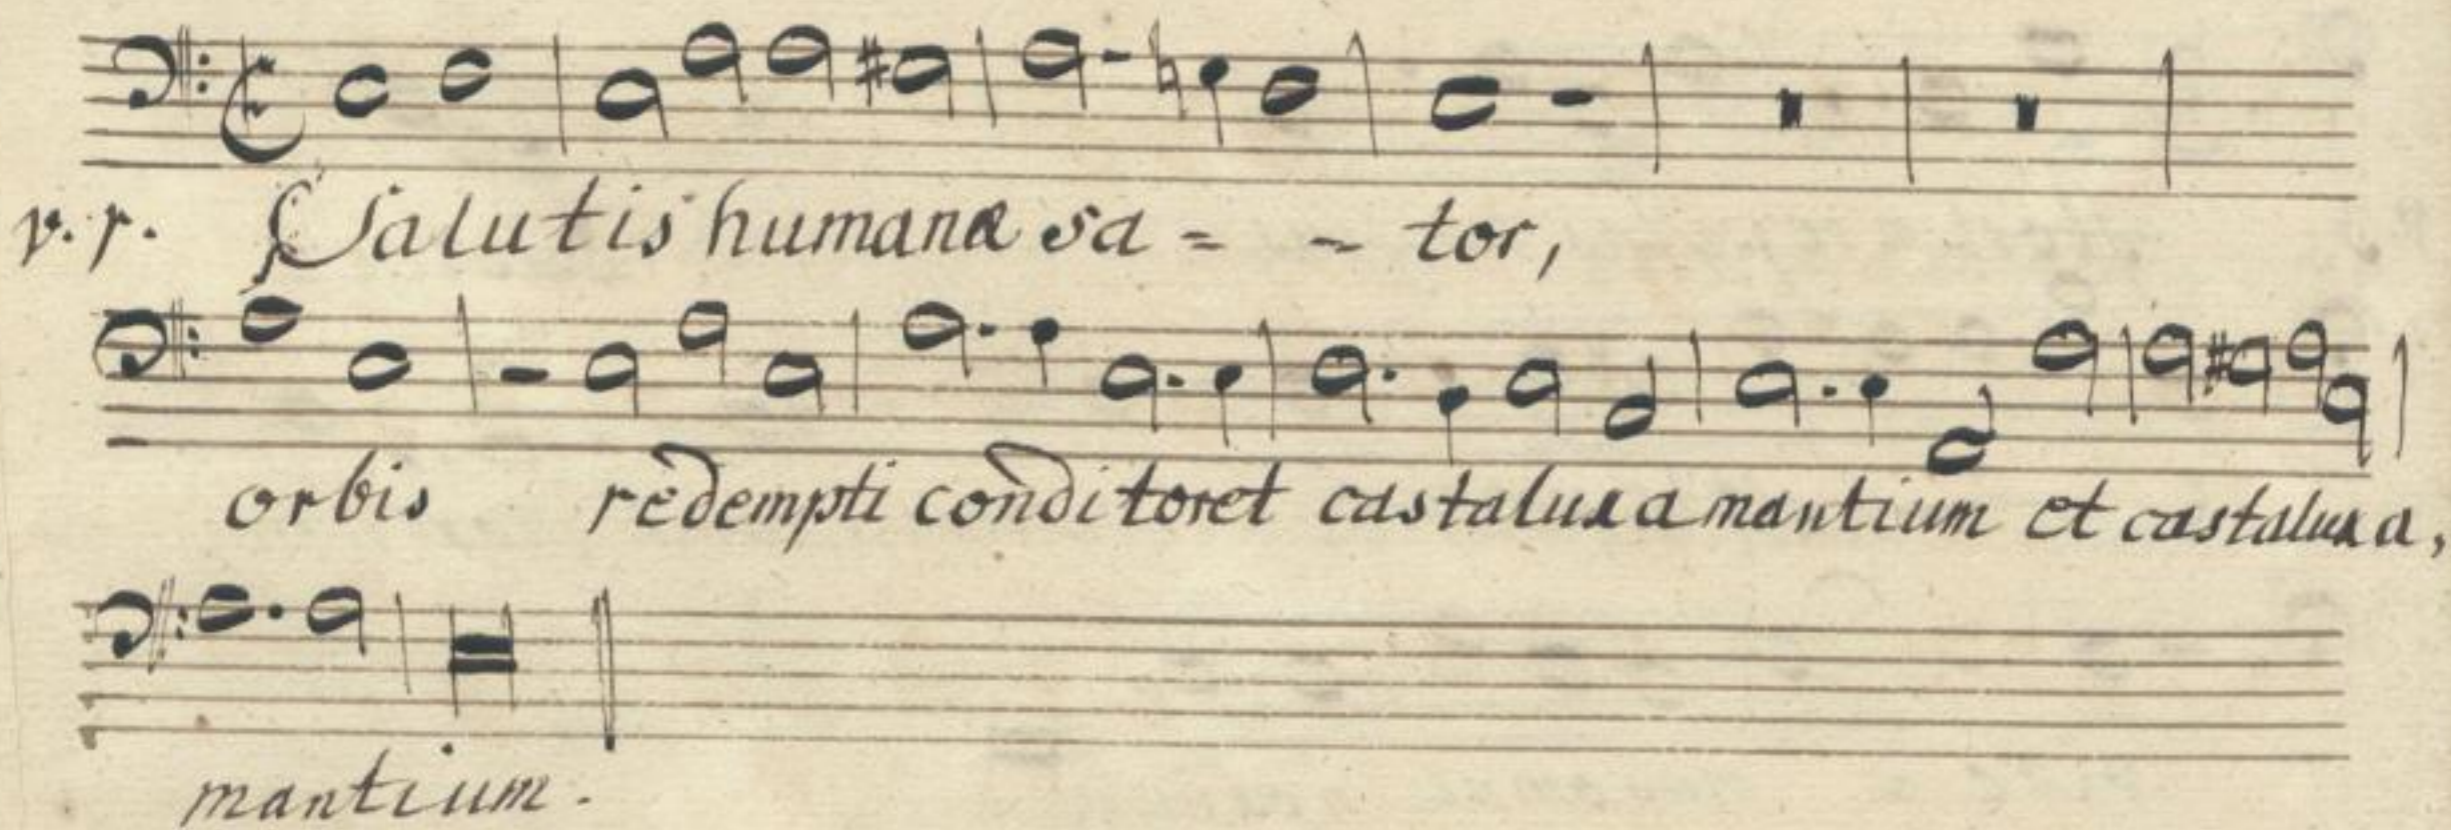 v. p. Salutis humanæ sa = - tor,
orbis redempti conditoret casta lux amantium et casta lux a,
mantium.